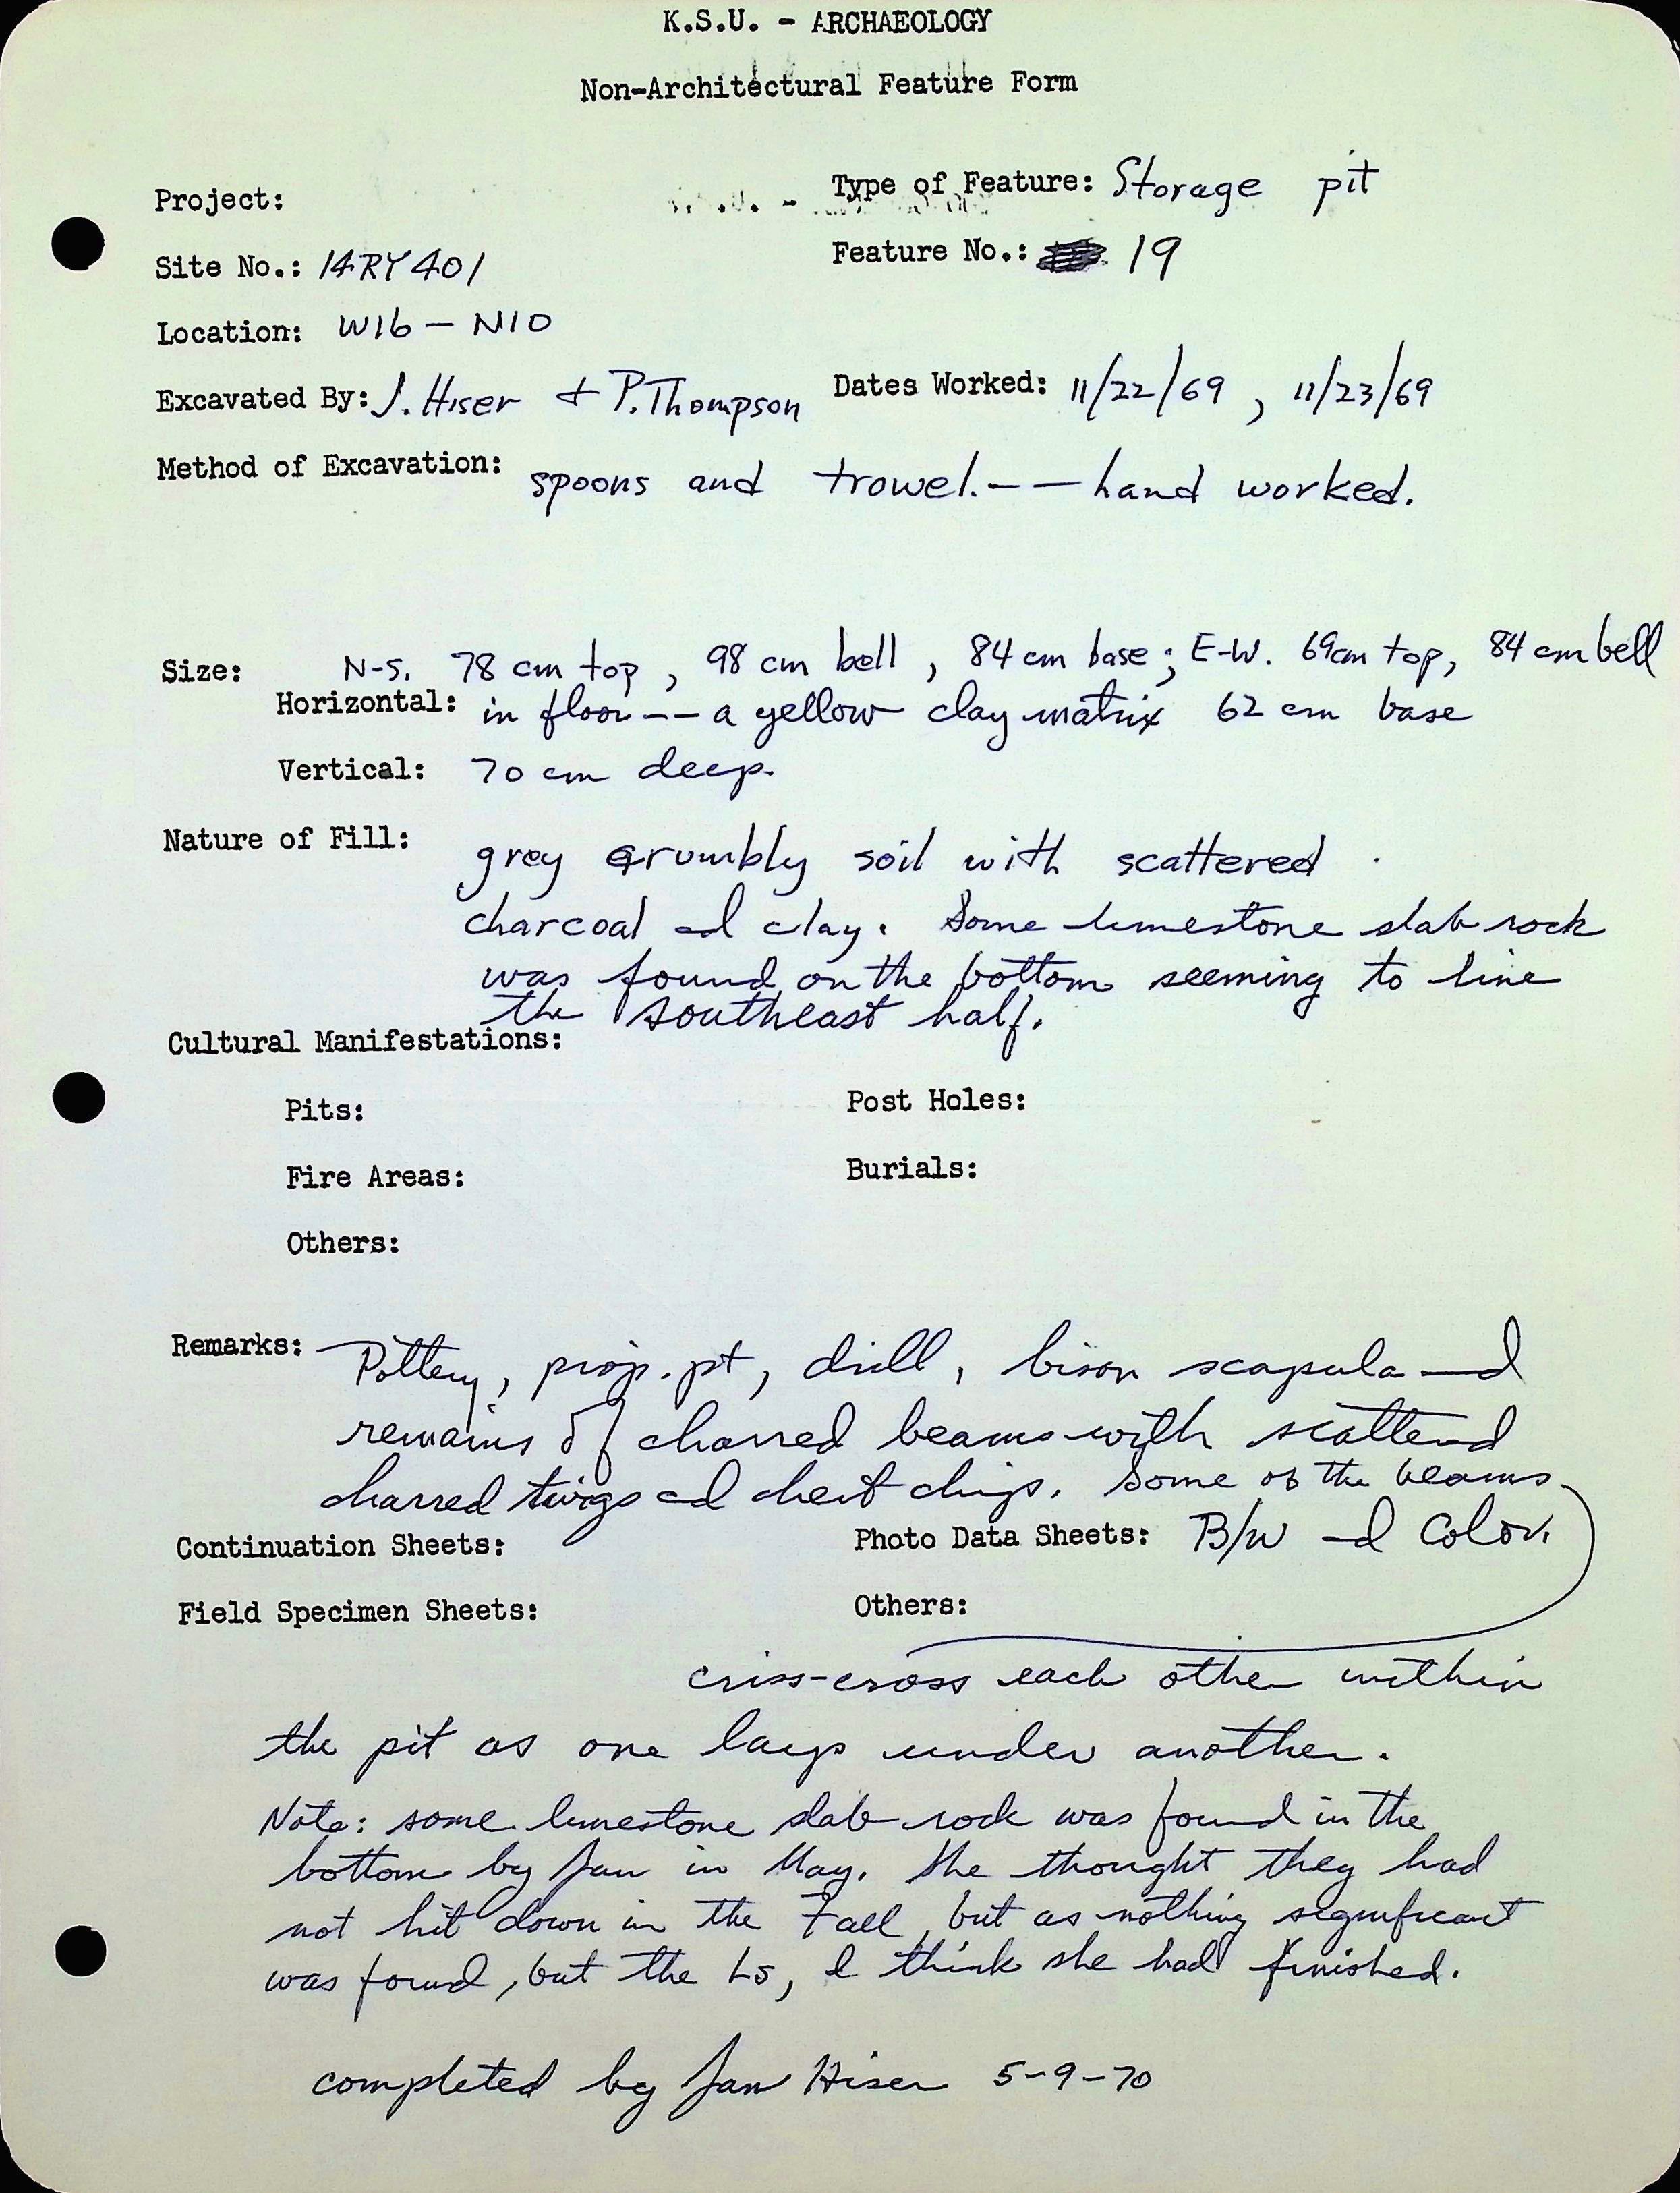 K.S.U. - ARCHAEOLOGY
Non-Architectural Feature Form
Project:
Type of Feature: Storage pit
Site No.: 14RY401
Feature No.: 19
Location: W16 - N10
Excavated By: J. Hiser + P. Thompson
Dates Worked: 11/22/69 , 11/23/69
Method of Excavation: spoons and trowel. -- hand worked.
Size: N-S. 78 cm top, 98 cm bell, 84 cm base; E-W. 69cm top, 84 cm bell
Horizontal: in floor -- a yellow clay matrix 62 cm base
Vertical: 70 cm deep.
Nature of Fill: grey crumbly soil with scattered
charcoal and clay. Some limestone slab rock
was found on the bottom seeming to line
the southeast half.
Cultural Manifestations:
Pits:
Post Holes:
Fire Areas:
Burials:
Others:
Remarks: Pottery, proj. pt, drill, bison scapula and
remains of charred beams with scattered
charred twigs and chert chips. Some of the beams
Continuation Sheets:
Photo Data Sheets: B/W and Color.
Field Specimen Sheets:
Others:
criss-cross each other within
the pit as one lays under another.
Note: some limestone slab rock was found in the
bottom by Jan in May. She thought they had
not hit down in the Fall, but as nothing significant
was found, but the Ls, I think she had finished.
completed by Jan Hiser 5-9-70